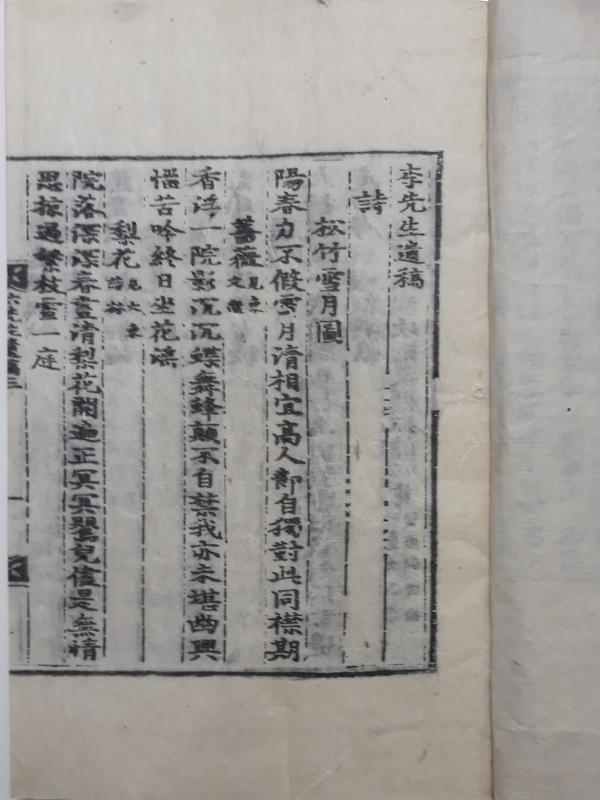 李先生遺稿
詩
松竹雪月圖
陽春力不假雪月清相宜高人自獨對此同襟期
薔薇 見東文選
香浮一院影沉沉蝶舞蜂顛不自禁我亦未堪幽興
惱苦吟終日坐花
梨花 見大東詩林
院落深深春晝清梨花開遍正冥冥鶯兒儘是無情
思掠過繁枝雪一庭
六先生遺稿三
一